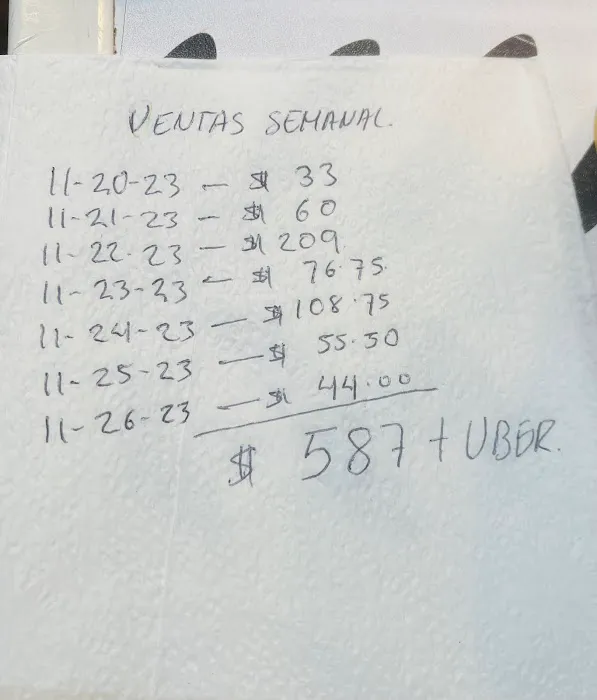 VENTAS SEMANAL.
11-20-23 - $ 33
11-21-23 - $ 60
11-22-23 - $ 209.
11-23-23 - $ 76.75
11-24-23 - $ 108.75
11-25-23 - $ 55.50
11-26-23 - $ 44.00
$ 587 + UBER.